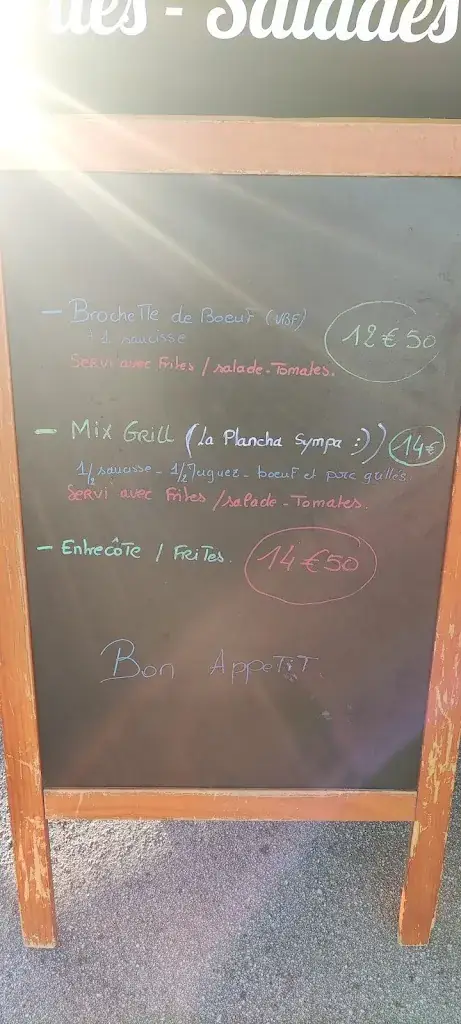 - Salades
- Brochette de Boeuf (VBF)
+ 1 saucisse
12€50
Servi avec Frites / salade - Tomates.
- Mix Grill (La Plancha Sympa :)) 14€
1/2 saucisse - 1/2 Tuguez - boeuf et porc grillés
Servi avec Frites / salade - Tomates.
- Entrecôte / Frites. 14€50
Bon Appetit.